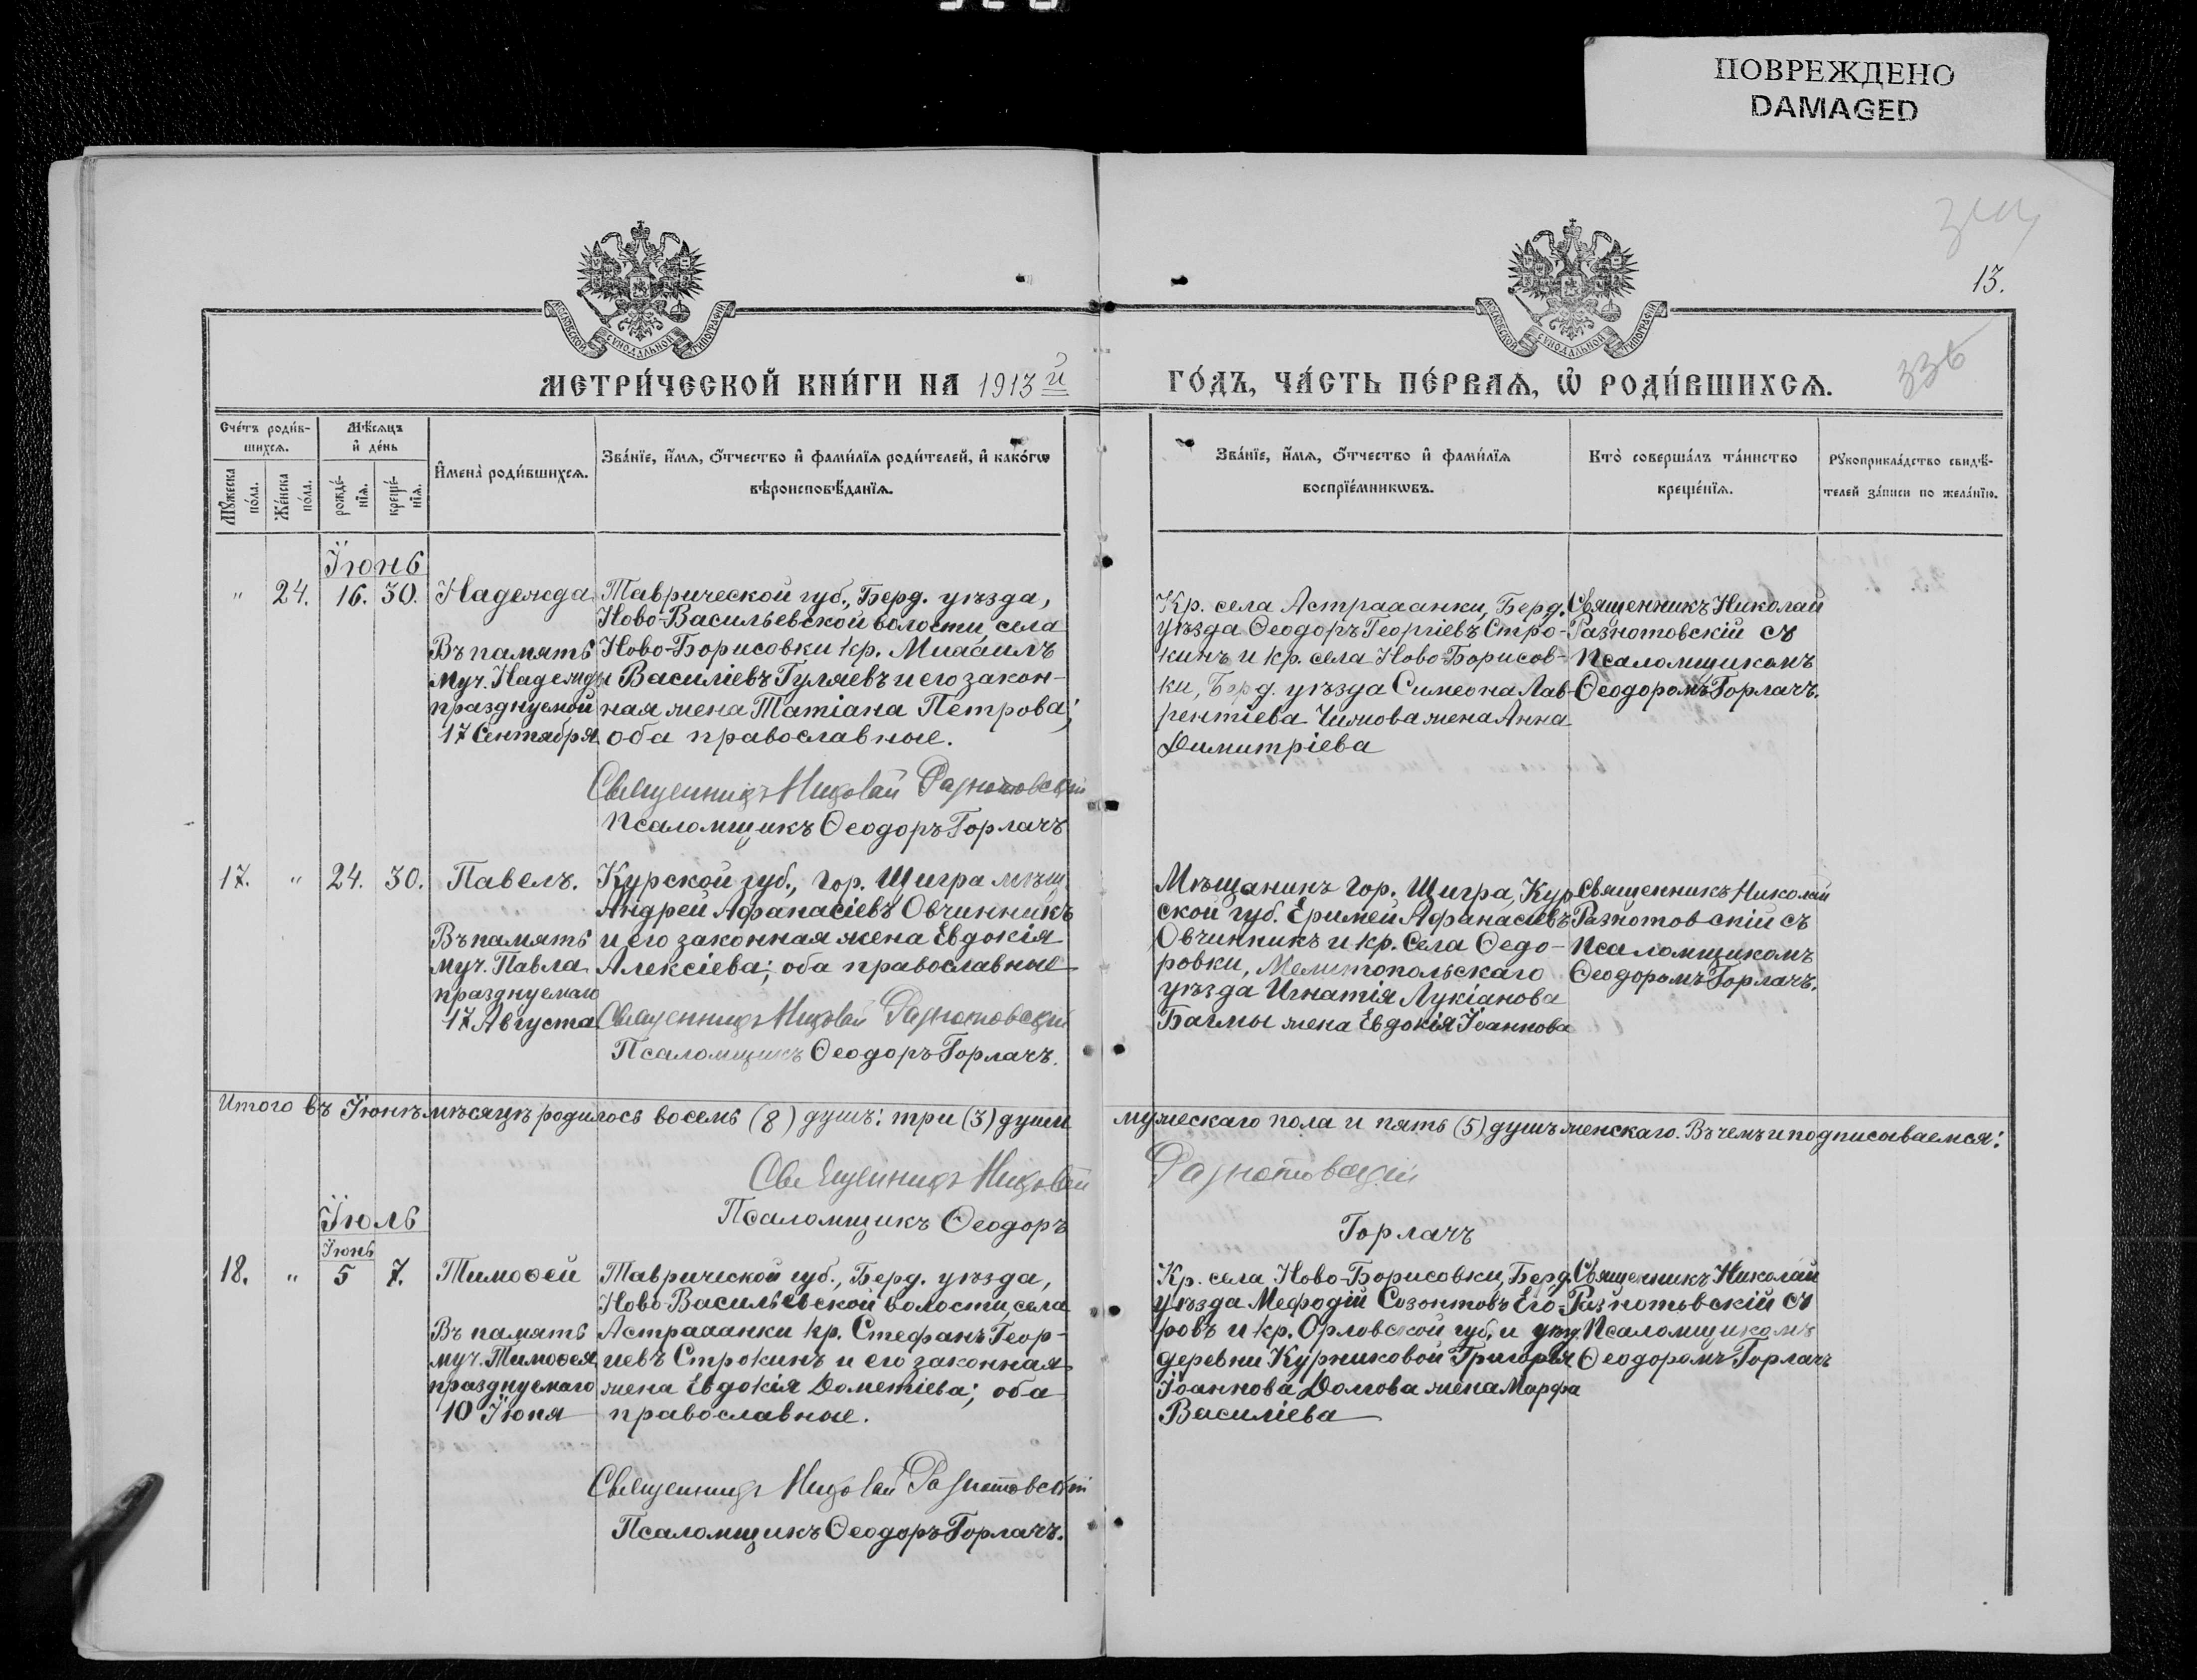 ПОВРЕЖДЕНО
DAMAGED
13.
336
МОСКОВСКОЙ СѴНОДАЛЬНОЙ ТИПОГРАФІИ
МОСКОВСКОЙ СѴНОДАЛЬНОЙ ТИПОГРАФІИ
МЕТРИ́ЧЕСКОЙ КНИ́ГИ НА 1913й
ГО́ДЪ, ЧА́СТЬ ПЕ́РВАѦ, Ѡ҆ РОДИ́ВШИХСѦ.
Сче́тъ роди́в-
шихсѧ.
Мѣ́сѧцъ
и҆ де́нь
Мꙋ́жеска по́ла.
Же́нска по́ла.
рожде́-нїѧ.
креще́-нїѧ.
И҆мена̀ роди́вшихсѧ.
Зва́нїе, и҆́мѧ, ѻ҆́тчество и҆ фами́лїѧ роди́телей, и҆ како́гѡ
вѣроисповѣ́данїѧ.
Зва́нїе, и҆́мѧ, ѻ҆́тчество и҆ фами́лїѧ
воспрїе́мникѡвъ.
Кто̀ соверша́лъ та́инство
креще́нїѧ.
Рꙋкоприкла́дство свидѣ́-
телей за́писи по жела́нїю.
Іюнь
" 24. 16. 30. Надежда
Въ память
муч. Надежды
празднуемой
17 Сентября
Таврической губ., Берд. уѣзда,
Ново-Васильевской волости, села
Ново-Борисовки кр. Михаилъ
Василіевъ Гуляевъ и его закон-
ная жена Татіана Петрова;
оба православные.
Священникъ Николай Разнотовскій
Псаломщикъ Ѳеодоръ Горлачъ
Кр. села Астраханки, Берд.
уѣзда Ѳеодоръ Георгіевъ Стро-
кинъ и кр. села Ново-Борисов-
ки, Берд. уѣзда Симеона Лав-
рентіева Чижова жена Анна
Димитріева
Священникъ Николай
Разнотовскій съ
Псаломщикомъ
Ѳеодоромъ Горлачъ.
17. " 24. 30. Павелъ.
Въ память
муч. Павла
празднуемаго
17 Августа
Курской губ., гор. Щигра мѣщ.
Андрей Афанасіевъ Овчинникъ
и его законная жена Евдокія
Алексіева; оба православные
Священникъ Николай Разнотовскій
Псаломщикъ Ѳеодоръ Горлачъ.
Мѣщанинъ гор. Щигра, Кур
ской губ. Еримей Афанасіевъ
Овчинникъ и кр. села Ѳедо-
ровки, Мелитопольскаго
уѣзда Игнатія Лукіанова
Багмы жена Евдокія Іоаннова
Священникъ Николай
Разнотовскій съ
Псаломщикомъ
Ѳеодоромъ Горлачъ.
Итого въ Іюнѣ мѣсяцѣ родилось восемь (8) душъ: три (3) души мужескаго пола и пять (5) душъ женскаго. Въ чемъ и подписываемся:
Священникъ Николай Разнотовскій
Псаломщикъ Ѳеодоръ Горлачъ
Іюль
Іюнь
18. " 5 7. Тимоѳей
Въ память
муч. Тимоѳея
празднуемаго
10 Іюня
Таврической губ., Берд. уѣзда,
Ново-Васильевской волости, села
Астраханки кр. Стефанъ Геор-
гіевъ Строкинъ и его законная
жена Евдокія Дометіева; оба
православные.
Священникъ Николай Разнотовскій
Псаломщикъ Ѳеодоръ Горлачъ.
Кр. села Ново-Борисовки, Берд.
уѣзда Мефодій Созонтовъ Его-
ровъ и кр. Орловской губ. и уѣзд.
деревни Курниковой Григорія
Іоаннова Долгова жена Марфа
Василіева
Священникъ Николай
Разнотовскій съ
Псаломщикомъ
Ѳеодоромъ Горлачъ